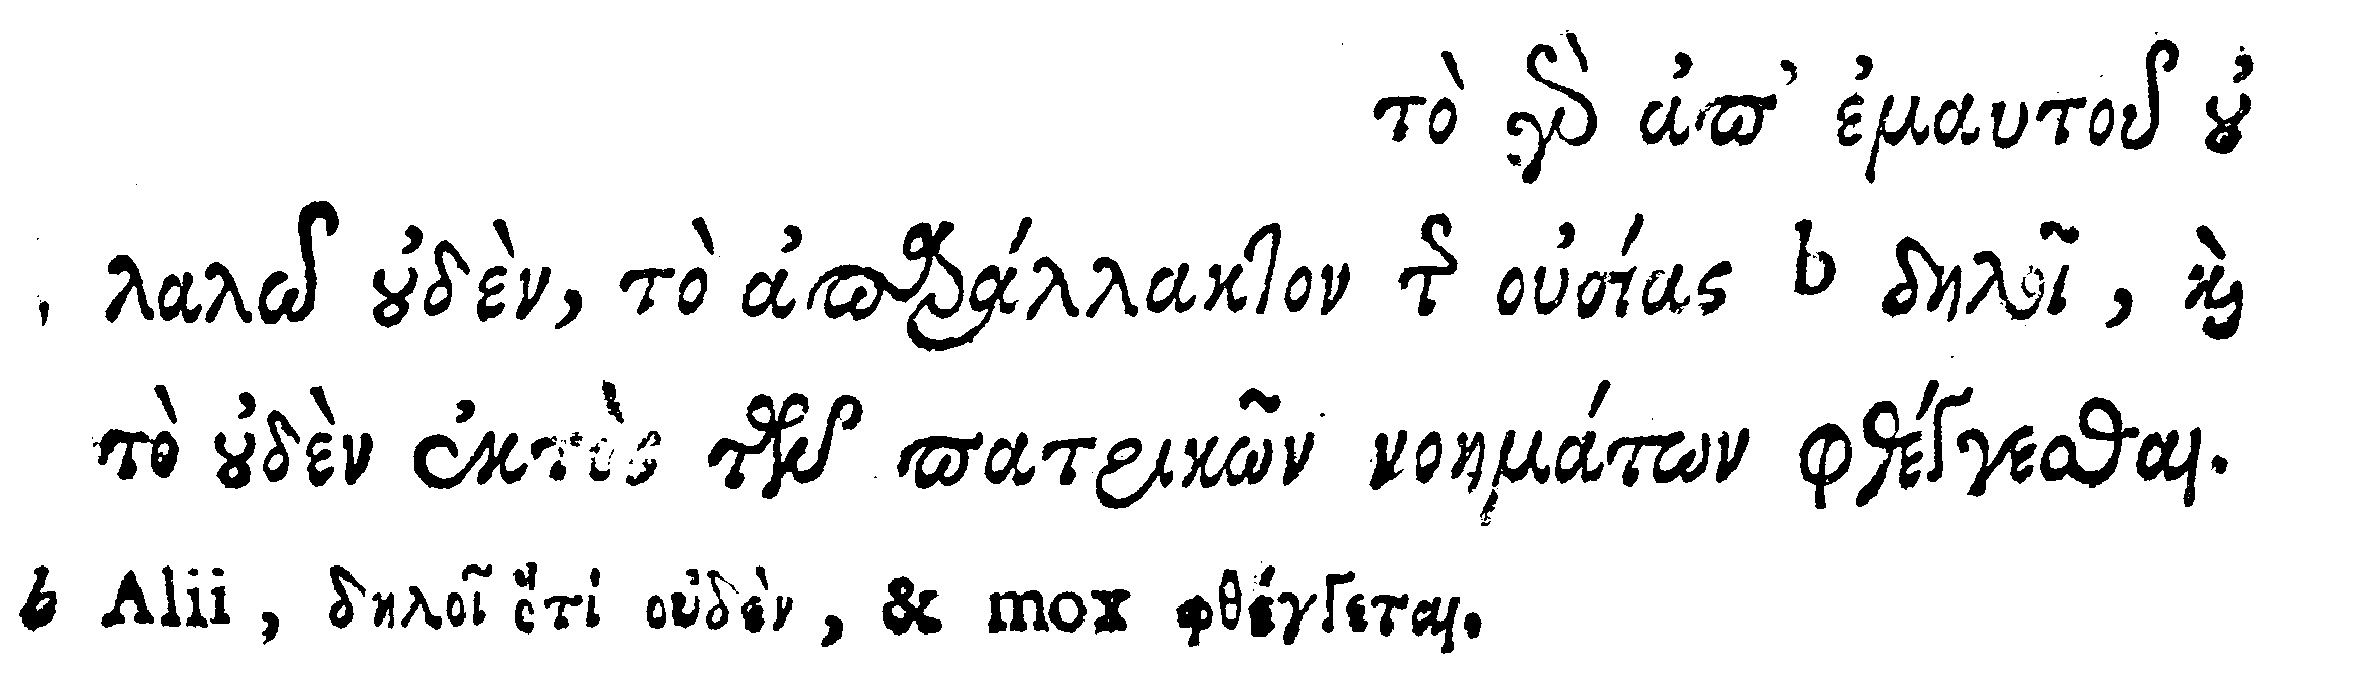 τὸ γὰρ ἀπ' ἐμαυτοῦ οὐ
λαλῶ οὐδὲν, τὸ ἀπαράλλακτον τῆς οὐσίας b δηλοῖ, καὶ
τὸ οὐδὲν ἐκτὸς τῶν πατρικῶν νοημάτων φθέγγεσθαι.
b Alii, δηλοῖ ὅτι οὐδὲν, & mox φθέγγεται.